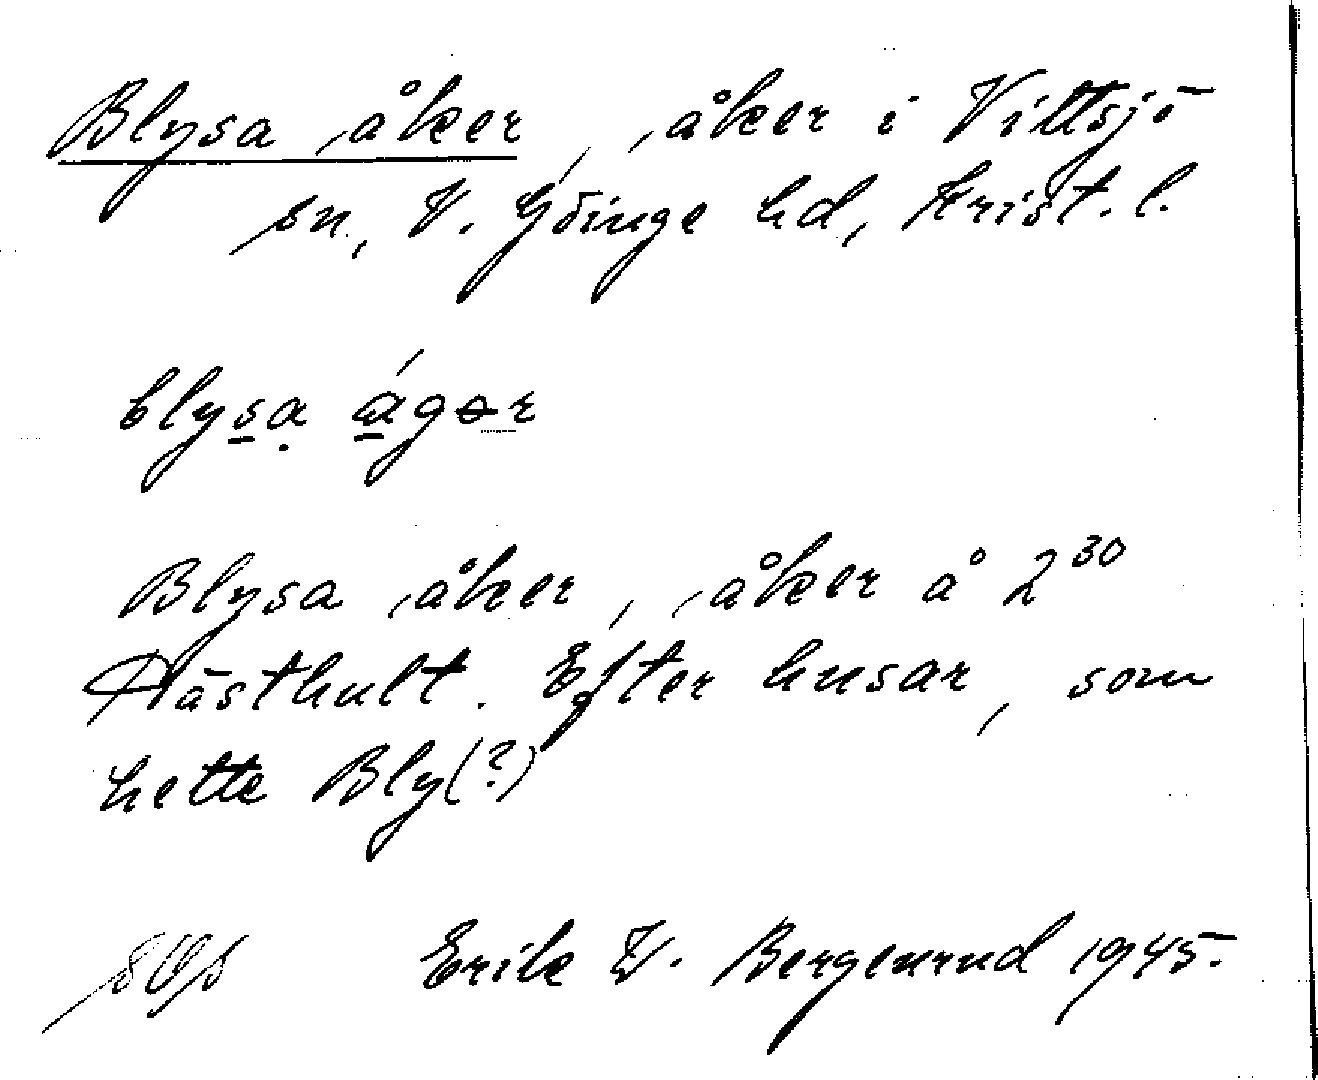 Blysa åker, åker i Vittsjö
sn, V. Göinge hd, Krist. l.
blysa ágər
Blysa åker, åker å 2³⁰
Hästhult. Efter husar, som
hette Bly(?)
Erik W. Bergenrud 1945.